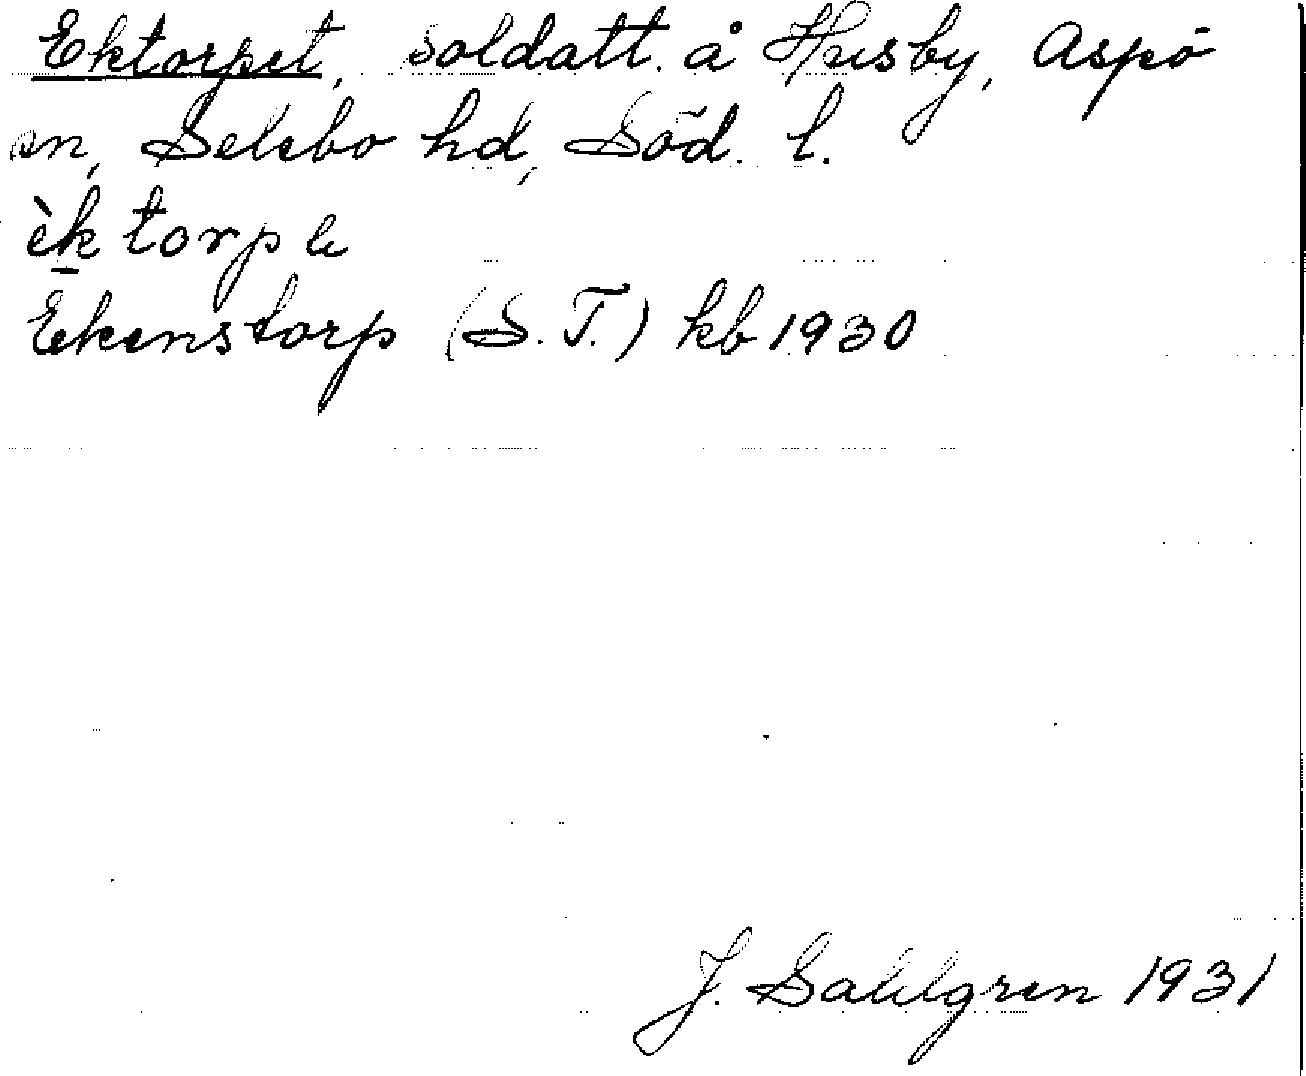 Ektorpet, soldatt. å Husby, Aspö
sn, Selebo hd, Söd. l.
èk torpe
Ekenstorp (S. T.) kb 1930
J. Sahlgren 1931